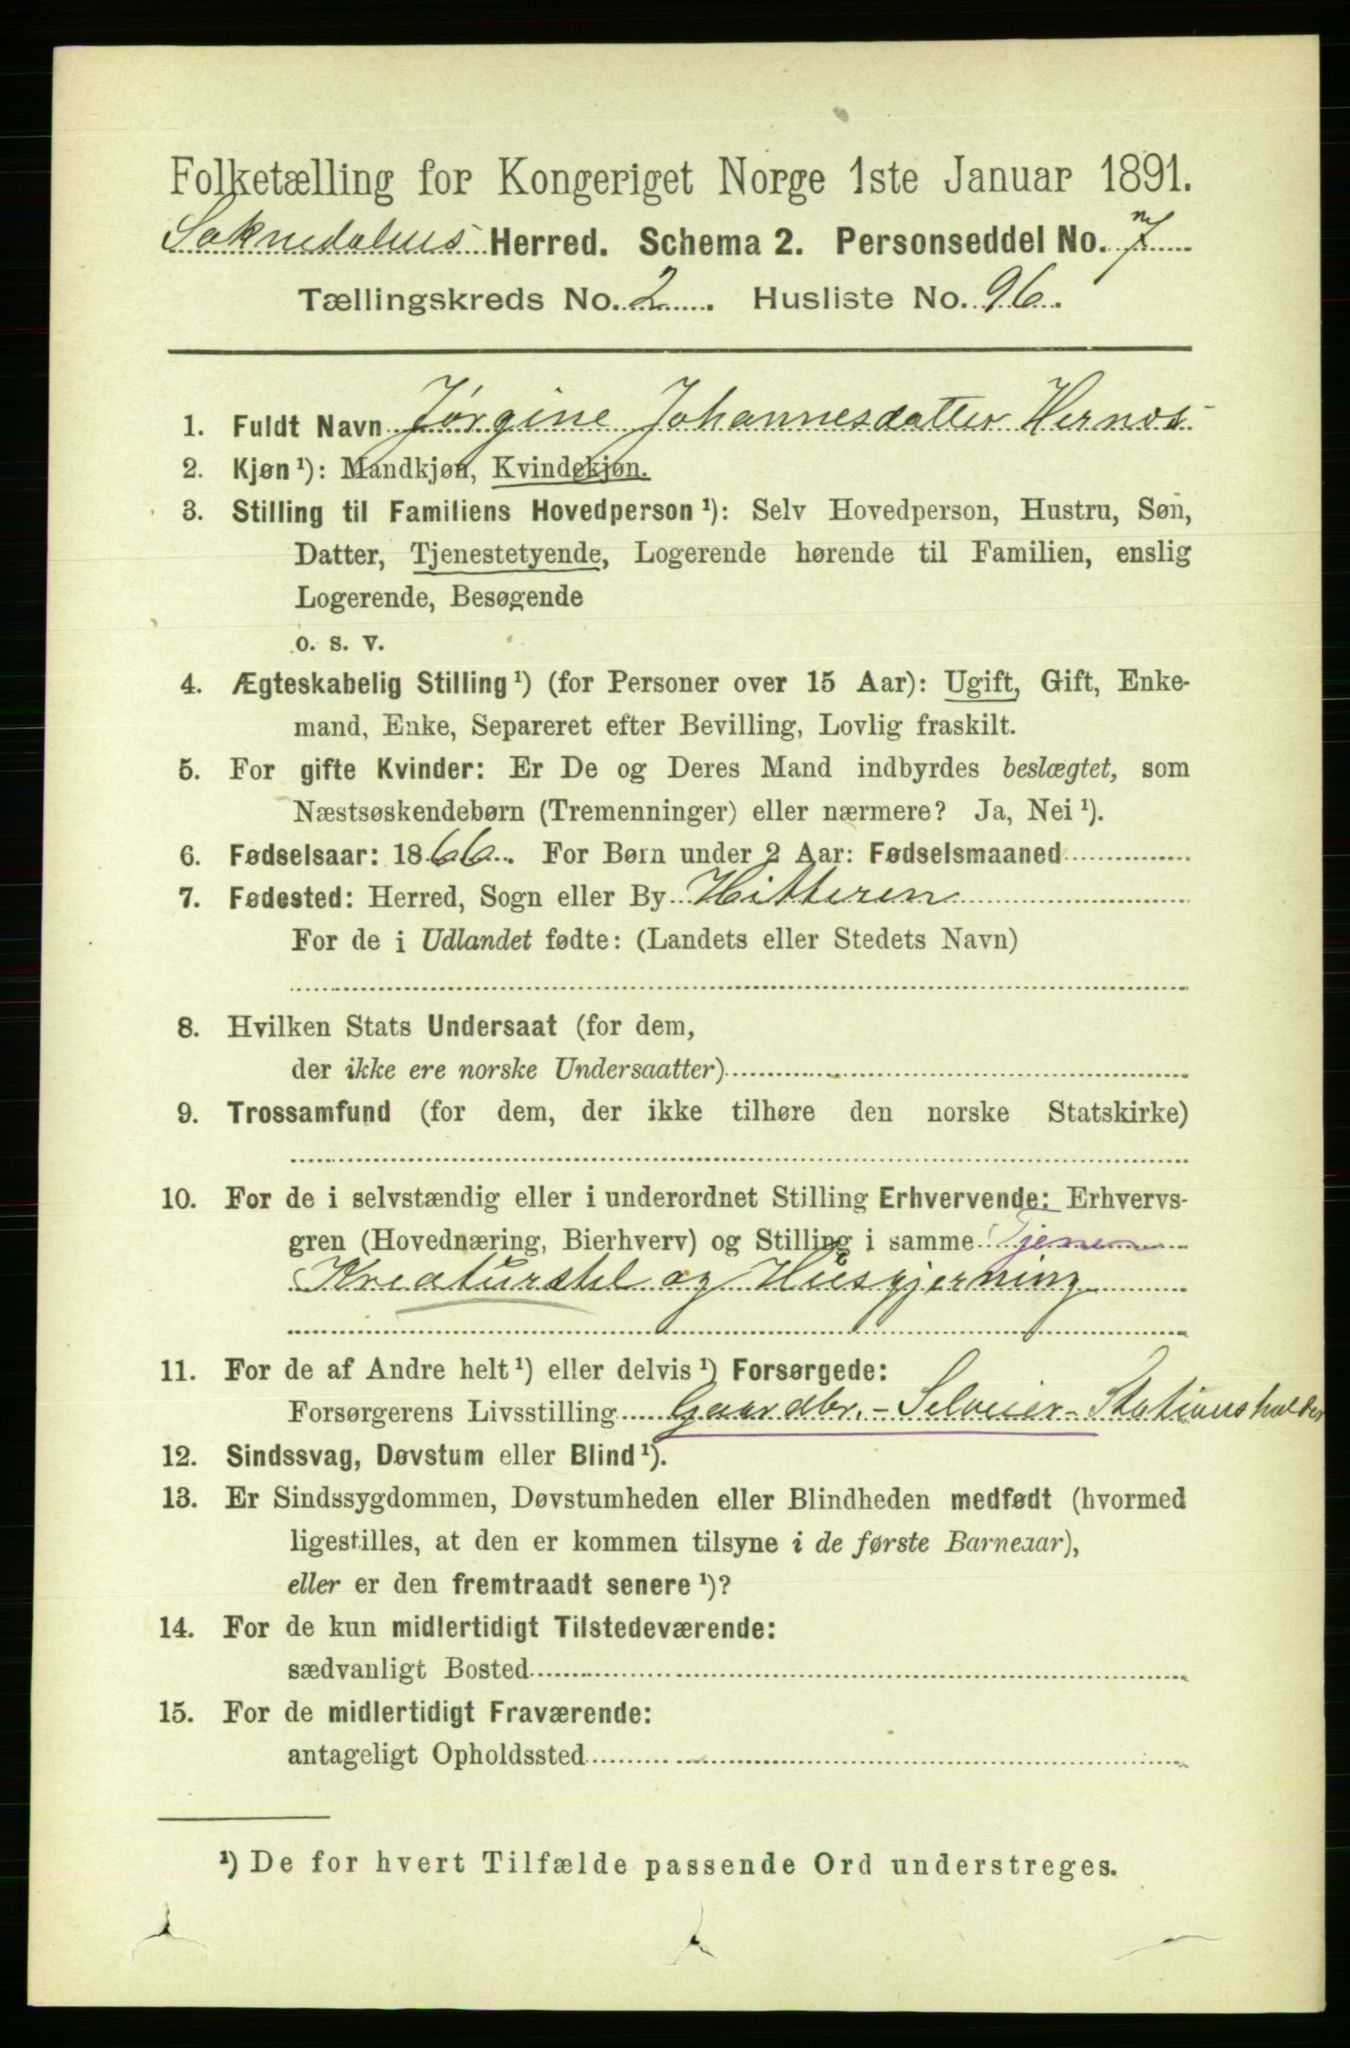 Folketælling for Kongeriget Norge 1ste Januar 1891.
Soknedalens Herred. Schema 2. Personseddel No. 7
Tællingskreds No. 2. Husliste No. 96.
1. Fuldt Navn Jørgine Johannesdatter Hernes
2. Kjøn ¹): Mandkjøn, Kvindekjøn.
3. Stilling til Familiens Hovedperson ¹): Selv Hovedperson, Hustru, Søn,
Datter, Tjenestetyende, Logerende hørende til Familien, enslig
Logerende, Besøgende
o. s. v.
4. Ægteskabelig Stilling ¹) (for Personer over 15 Aar): Ugift, Gift, Enke-
mand, Enke, Separeret efter Bevilling, Lovlig fraskilt.
5. For gifte Kvinder: Er De og Deres Mand indbyrdes beslægtet, som
Næstsøskendebørn (Tremenninger) eller nærmere? Ja, Nei ¹).
6. Fødselsaar: 1866. For Børn under 2 Aar: Fødselsmaaned
7. Fødested: Herred, Sogn eller By Hitteren
For de i Udlandet fødte: (Landets eller Stedets Navn)
8. Hvilken Stats Undersaat (for dem,
der ikke ere norske Undersaatter)
9. Trossamfund (for dem, der ikke tilhøre den norske Statskirke)
10. For de i selvstændig eller i underordnet Stilling Erhvervende: Erhvervs-
gren (Hovednæring, Bierhverv) og Stilling i samme Tjener
Kreaturstel og Husgjerning
11. For de af Andre helt ¹) eller delvis ¹) Forsørgede:
Forsørgerens Livsstilling Gaardbr. - Selveier - Stationsholder
12. Sindssvag, Døvstum eller Blind ¹).
13. Er Sindssygdommen, Døvstumheden eller Blindheden medfødt (hvormed
ligestilles, at den er kommen tilsyne i de første Barneaar),
eller er den fremtraadt senere ¹)?
14. For de kun midlertidigt Tilstedeværende:
sædvanligt Bosted
15. For de midlertidigt Fraværende:
antageligt Opholdssted
¹) De for hvert Tilfælde passende Ord understreges.